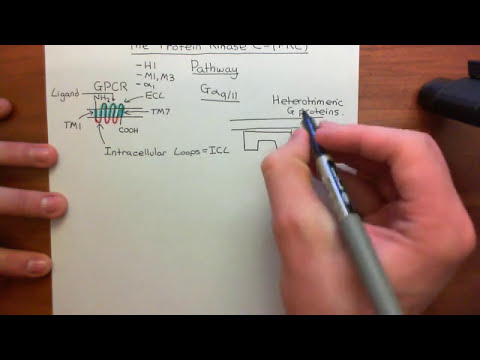 The Protein Kinase C (PKC)
Pathway
- H1
- M1, M3
- α1
Gαq/11
GPCR
Ligand
NH2
ECL
TM7
TM1
COOH
Intracellular Loops = ICL
Heterotrimeric
G Proteins.